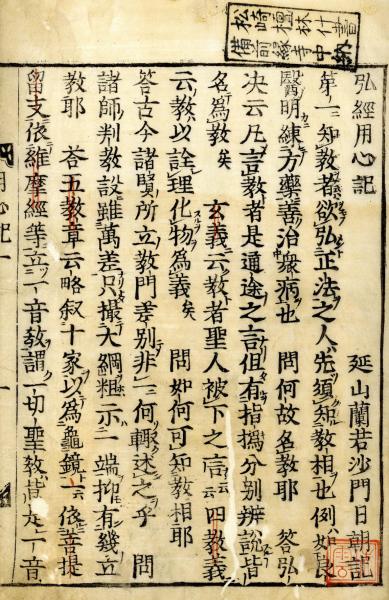 弘經用心記　延山蘭若沙門日朝記
第一ニ知教者欲弘正法之人先須知教相也例如良
醫明練方藥善治衆病也　問何故名教耶　答弘
决云凡言教者是通途之言但有指撝分別辨說皆
名為教矣　玄義云教者聖人被下之言云云四教義
云教以詮理化物為義矣　問如何可知教相耶
答古今諸賢所立教門差別非一何輙述之乎　問
諸師判教設雖萬差只撮大綱粗示一端抑有幾立
教耶　答五教章云略叙十家以為龜鏡一依菩提
留支依維摩經等立一音教謂一切聖教皆是一音
心記一